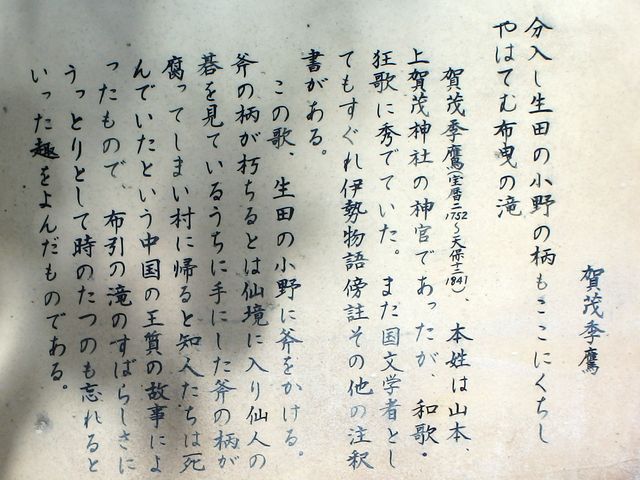 賀茂季鷹
分入し生田の小野の柄もここにくちし
やはてむ布曳の滝
賀茂季鷹(宝暦二1752～天保十二1841)、本姓は山本、
上賀茂神社の神官であったが、和歌・
狂歌に秀でていた。また国文学者とし
てもすぐれ伊勢物語傍註その他の注釈
書がある。
この歌、生田の小野に斧をかける。
斧の柄が朽ちるとは仙境に入り仙人の
碁を見ているうちに手にした斧の柄が
腐ってしまい村に帰ると知人たちは死
んでいたという中国の王質の故事によ
ったもので、布引の滝のすばらしさに
うっとりとして時のたつのも忘れると
いった趣をよんだものである。